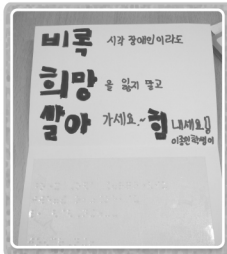 비록 시각 장애인이라도
희망을 잃지 말고
살아가세요.~ 힘내세요!
이종민학생이